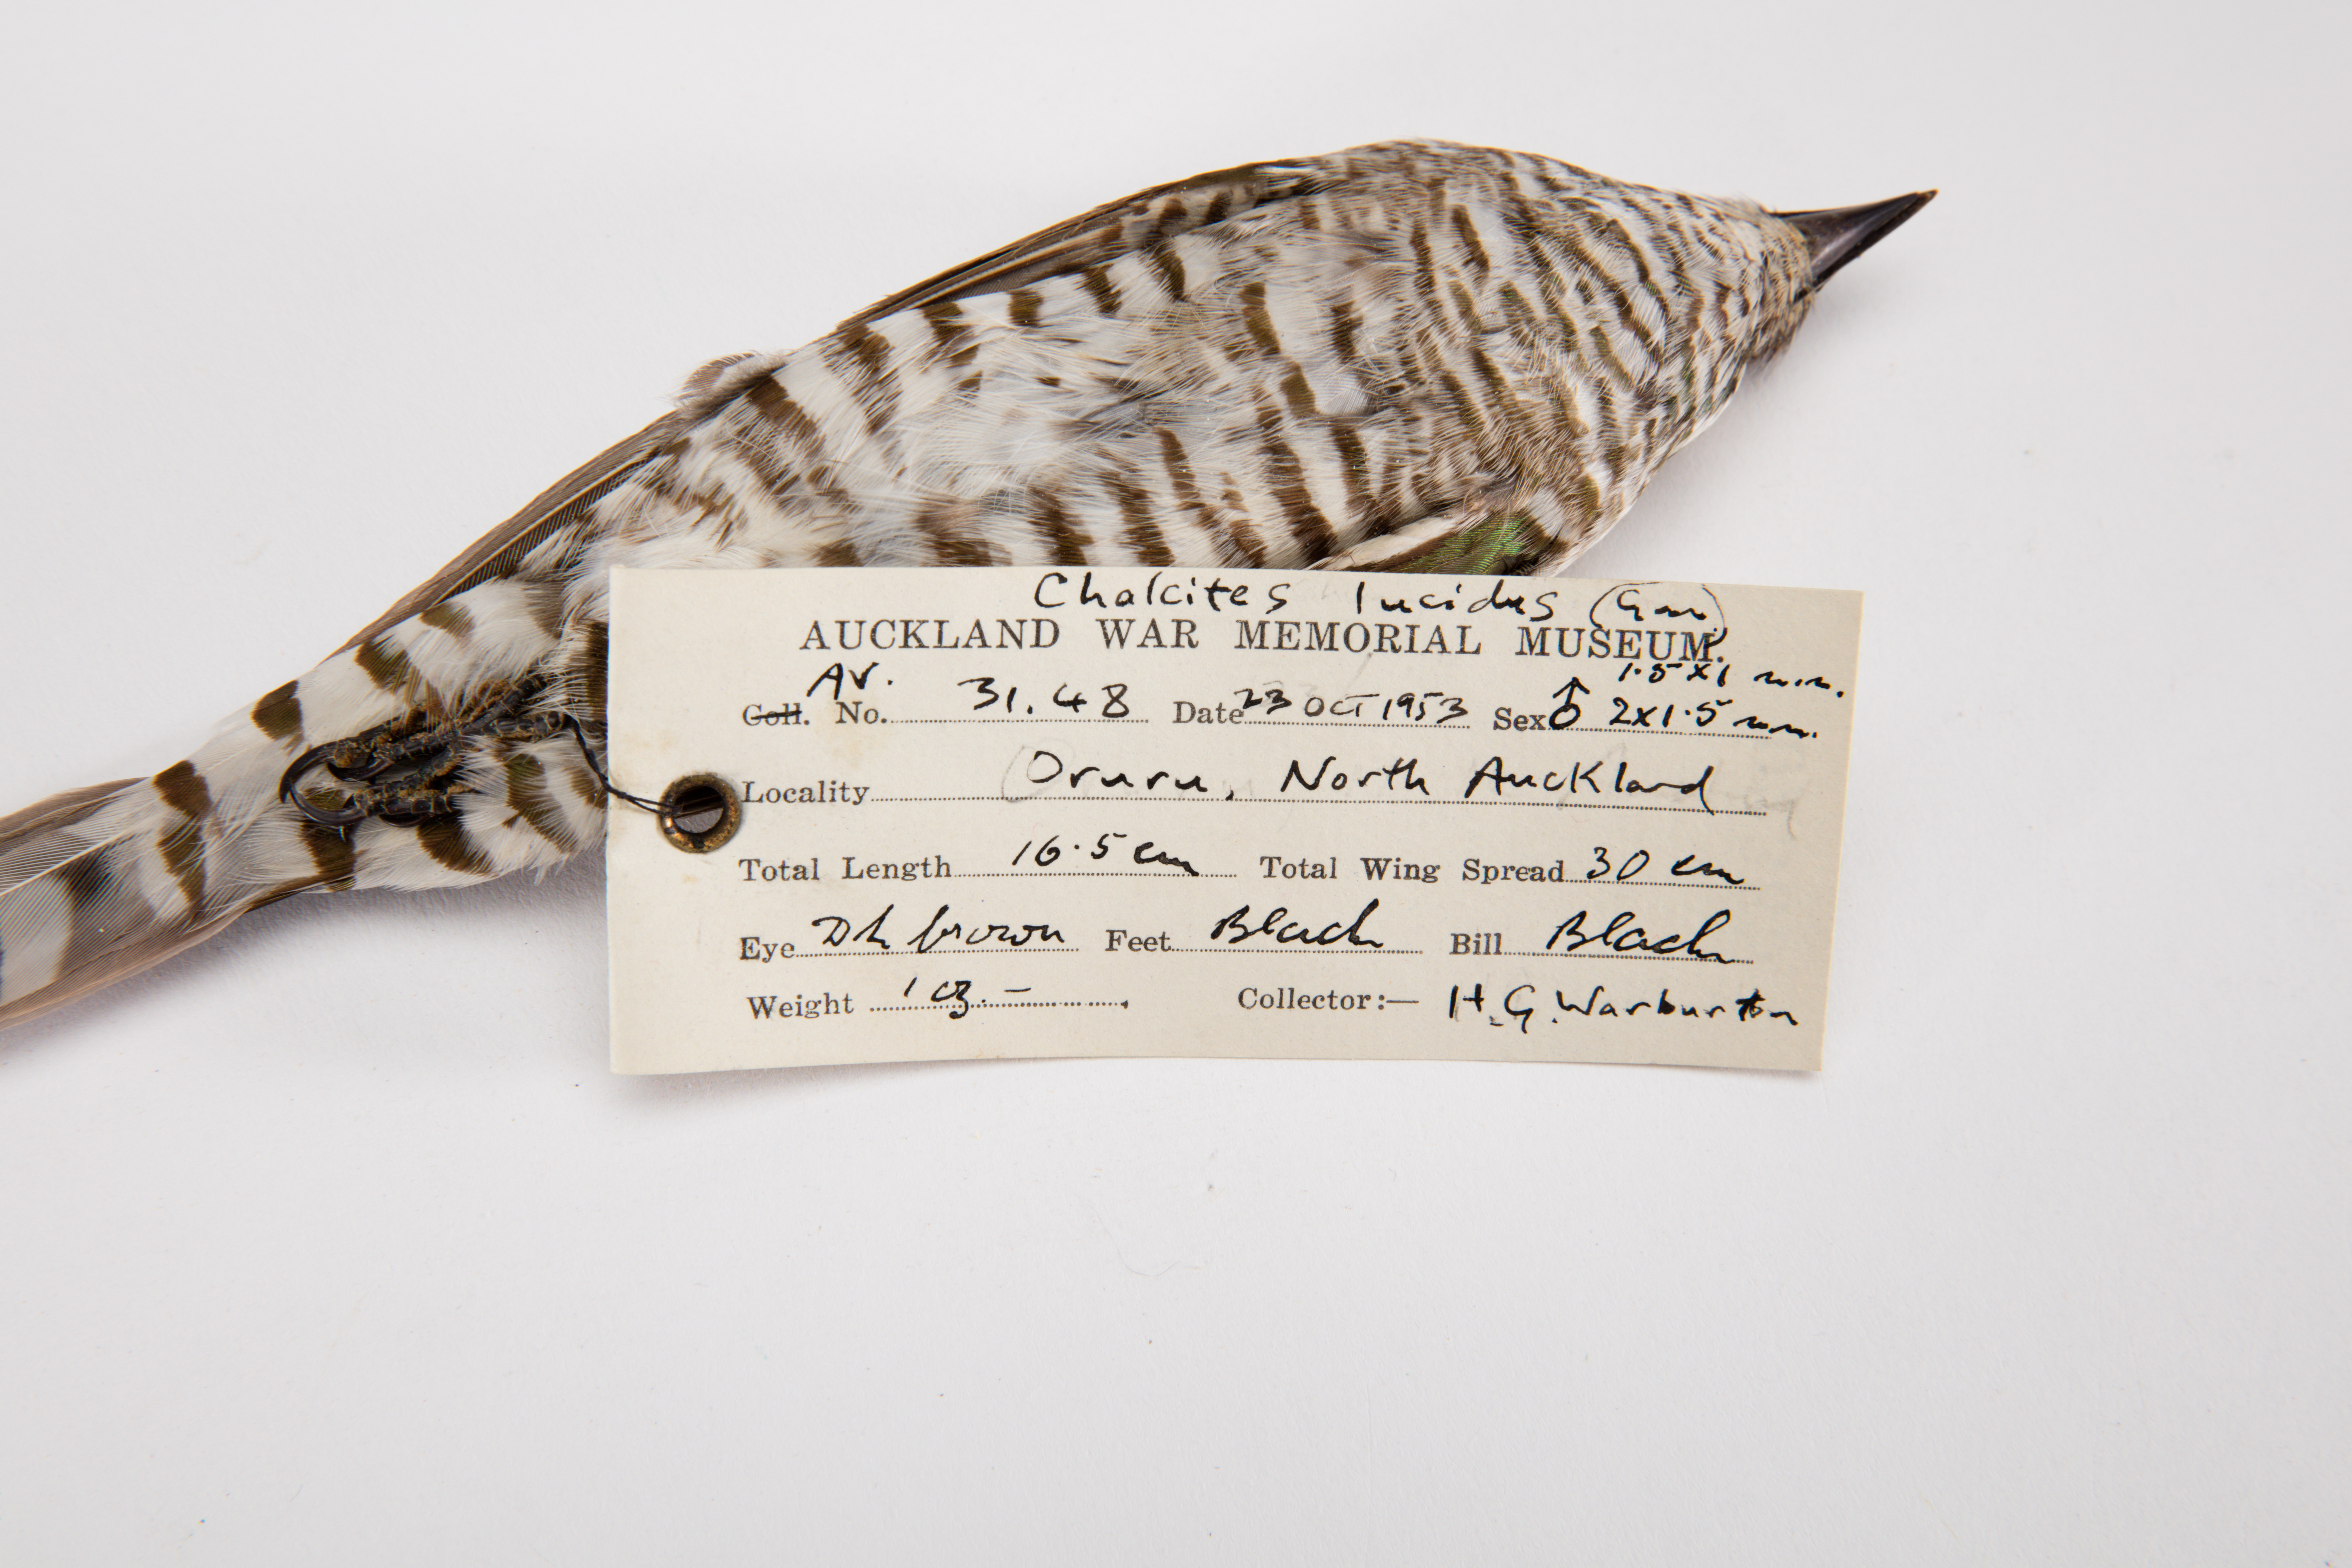 Chalcites lucidus (Gm)
AUCKLAND WAR MEMORIAL MUSEUM.
Av. 1.5 x 1 m.m.
Coll. No. 31.48 Date 23 OCT 1953 Sex ♂ 2x1.5 m.m.
Locality Oruru, North Auckland
Total Length 16.5 cm Total Wing Spread 30 cm
Eye Dk brown Feet Black Bill Black
Weight 1 oz. – Collector:— H.G. Warburton